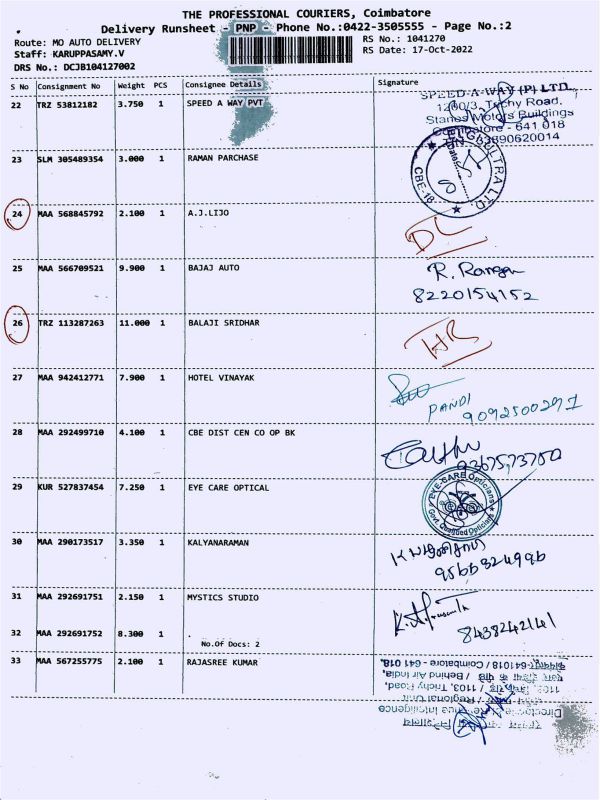 THE PROFESSIONAL COURIERS, Coimbatore
Delivery Runsheet - PNP - Phone No.:0422-3505555 - Page No.:2
Route: MO AUTO DELIVERY
RS No.: 1041270
Staff: KARUPPASAMY.V
RS Date: 17-Oct-2022
DRS No.: DCJB104127002
S No Consignment No Weight PCS Consignee Details Signature
22 TRZ 53812182 3.750 1 SPEED A WAY PVT
SPEED-A-WAY (P) LTD.
1200/3, Trichy Road,
Stanes Motors Buildings
Coimbatore - 641 018
23 SLM 305489354 3.000 1 RAMAN PARCHASE
ULTRA LTD
CBE-18
24 MAA 568845792 2.100 1 A.J.LIJO
DL
25 MAA 566709521 9.900 1 BAJAJ AUTO
R. Rangan
8220154152
26 TRZ 113287263 11.000 1 BALAJI SRIDHAR
27 MAA 942412771 7.900 1 HOTEL VINAYAK
PANDI
9092500291
28 MAA 292499710 4.100 1 CBE DIST CEN CO OP BK
29 KUR 527837454 7.250 1 EYE CARE OPTICAL
EYE-CARE Opticians
Govt. Qualified Opticians
30 MAA 290173517 3.350 1 KALYANARAMAN
31 MAA 292691751 2.150 1 MYSTICS STUDIO
8438242141
32 MAA 292691752 8.300 1
No.Of Docs: 2
33 MAA 567255775 2.100 1 RAJASREE KUMAR
641018 / Coimbatore - 641 018.
/ Behind Air India,
1103, Trichy Road,
/ Regional Unit
Intelligence